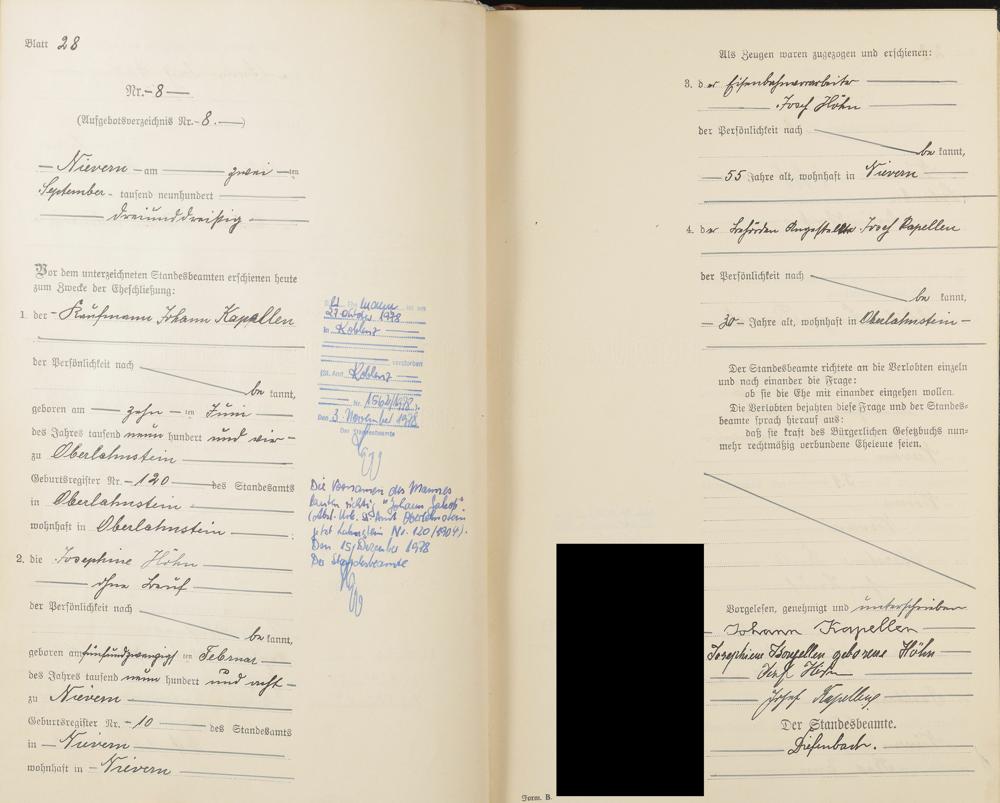 Blatt 28
Nr. 8
(Aufgebotsverzeichnis Nr. 8.)
Nievern am zwei ten
September tausend neunhundert
dreiunddreißig
Vor dem unterzeichneten Standesbeamten erschienen heute
zum Zwecke der Eheschließung:
1. der Kaufmann Johann Kapellen
der Persönlichkeit nach
be kannt,
geboren am zehn ten Juni
des Jahres tausend neun hundert und vier
zu Oberlahnstein
Geburtsregister Nr. 120 des Standesamts
in Oberlahnstein
wohnhaft in Oberlahnstein
2. die Josephine Höhn
ohne Beruf
der Persönlichkeit nach
be kannt,
geboren am fünfundzwanzigsten Februar
des Jahres tausend neun hundert und acht
zu Nievern
Geburtsregister Nr. 10 des Standesamts
in Nievern
wohnhaft in Nievern
Ehemann ist am
27. Oktober 1978
in Koblenz
verstorben
(St. Amt Koblenz
Nr. 1562/1978)
Den 3. November 1978
Der Standesbeamte
Die Vornamen des Mannes
lauten richtig "Johann Jakob"
Oberlahnstein
jetzt Lahnstein Nr. 120/1904).
Den 15. Dezember 1978
Der Standesbeamte
Als Zeugen waren zugezogen und erschienen:
3. der Eisenbahnvorarbeiter
Josef Höhn
der Persönlichkeit nach
be kannt,
55 Jahre alt, wohnhaft in Nievern
4. der Behörden Angestellte Josef Kapellen
der Persönlichkeit nach
be kannt,
30 Jahre alt, wohnhaft in Oberlahnstein
Der Standesbeamte richtete an die Verlobten einzeln
und nach einander die Frage:
ob sie die Ehe mit einander eingehen wollen.
Die Verlobten bejahten diese Frage und der Standes-
beamte sprach hierauf aus:
daß sie kraft des Bürgerlichen Gesetzbuchs nun-
mehr rechtmäßig verbundene Eheleute seien.
Vorgelesen, genehmigt und unterschrieben
Johann Kapellen
Josephine Kapellen geborene Höhn
Josef Höhn
Josef Kapellen
Der Standesbeamte.
Diefenbach.
Form. B.